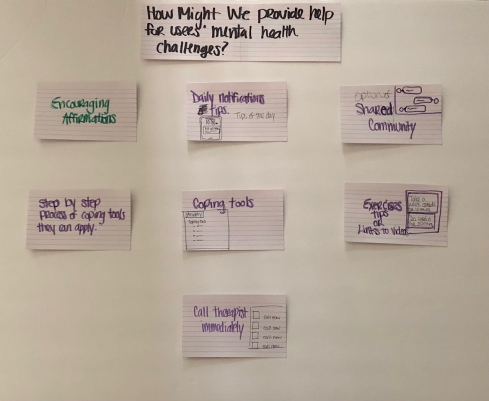 How Might We provide help
for users' mental health
challenges?
Encouraging
Affirmations
Daily notifications
tips
Tips of the day
option of
Shared
Community
Step by step
process of coping tools
they can apply.
Coping tools
Anxiety
Exercises
Tips
or
Links to video
Call therapist
immediately
call now
call now
call now
call now